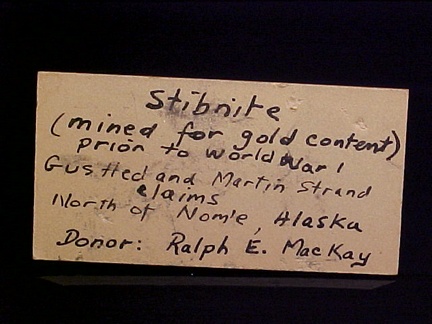 Stibnite
(mined for gold content)
prior to world War I
Gus Hed and Martin Strand
claims
North of Nome, Alaska
Donor: Ralph E. MacKay